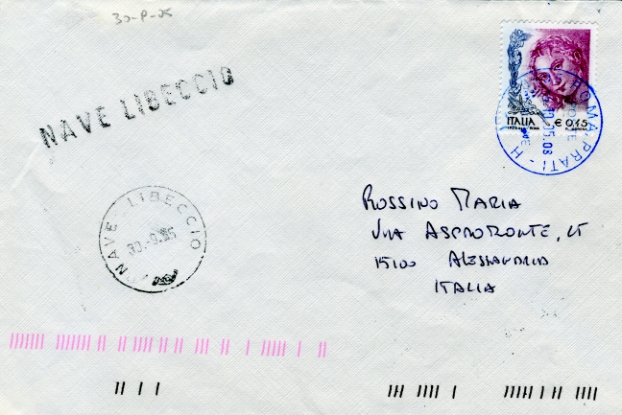 30-9-05
NAVE LIBECCIO
ITALIA € 0,45
ROMA PRATI
NAVE LIBECCIO
30.9.05
ROSSINO MARIA
VIA ASPROMONTE, 25
15100 ALESSANDRIA
ITALIA